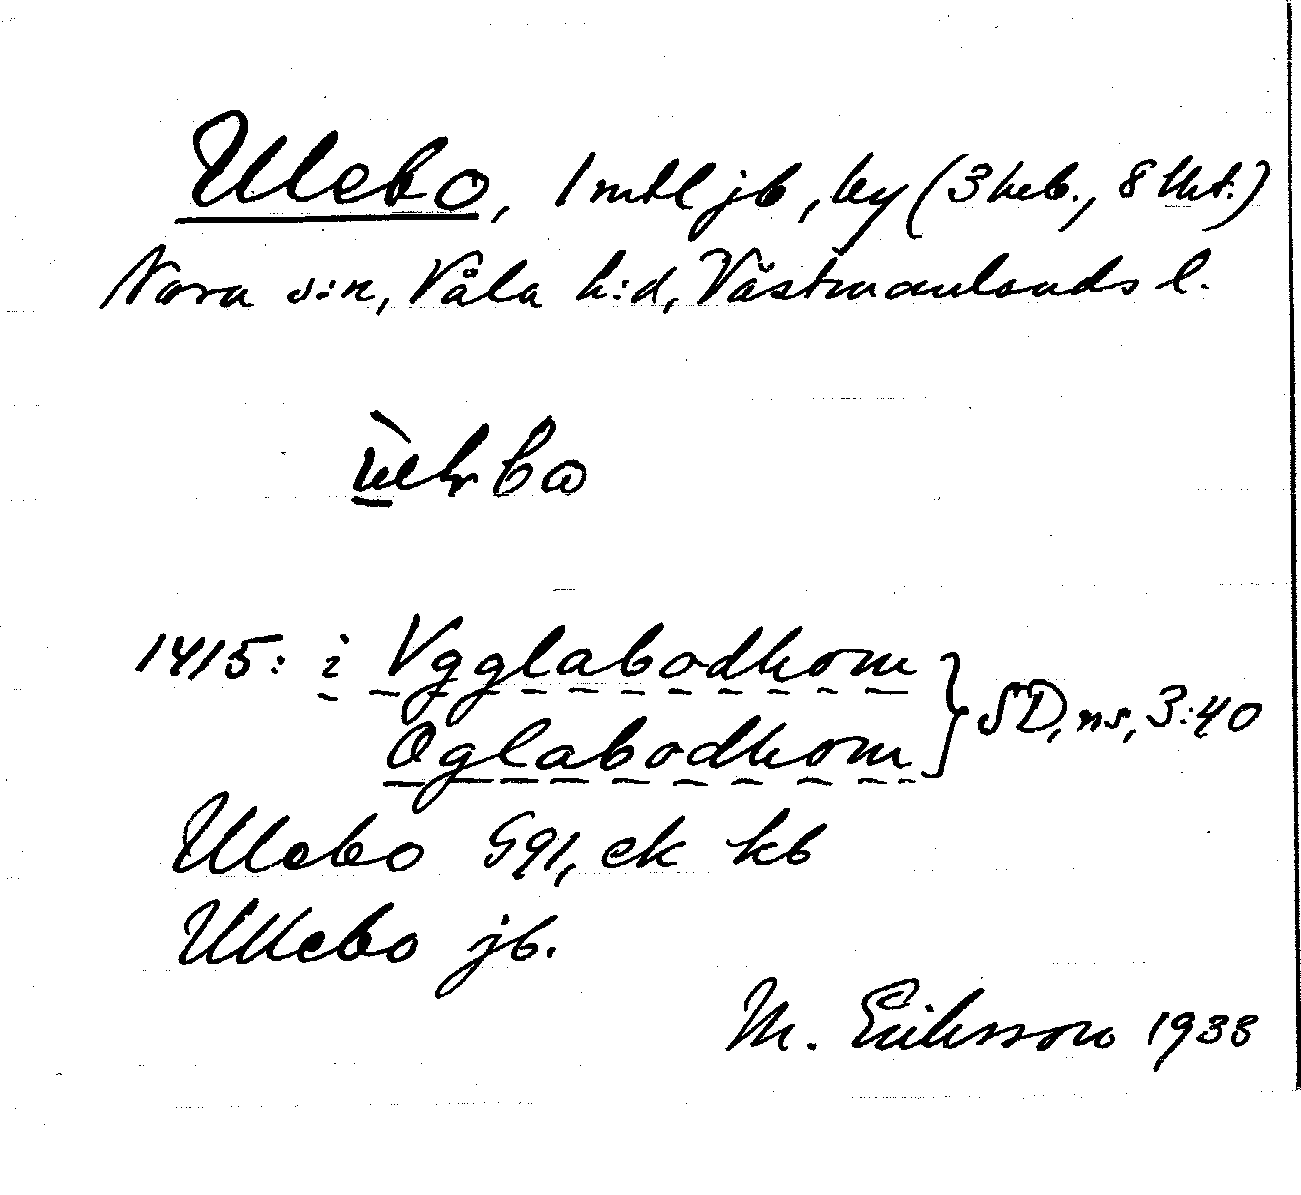 Ulebo, 1 mtl jb, by (3 heb., 8 lht.)
Nora s:n, Våla h:d, Västmanlands l.
1415: i Vgglabodhom
Oglabodhom } SD, ns, 3:40
Ulebo G91, ek kb
Ullebo jb.
M. Eriksson 1938